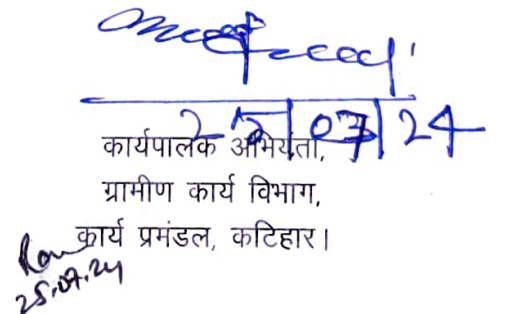 25/07/24
कार्यपालक अभियंता,
ग्रामीण कार्य विभाग,
कार्य प्रमंडल, कटिहार।
25.07.24